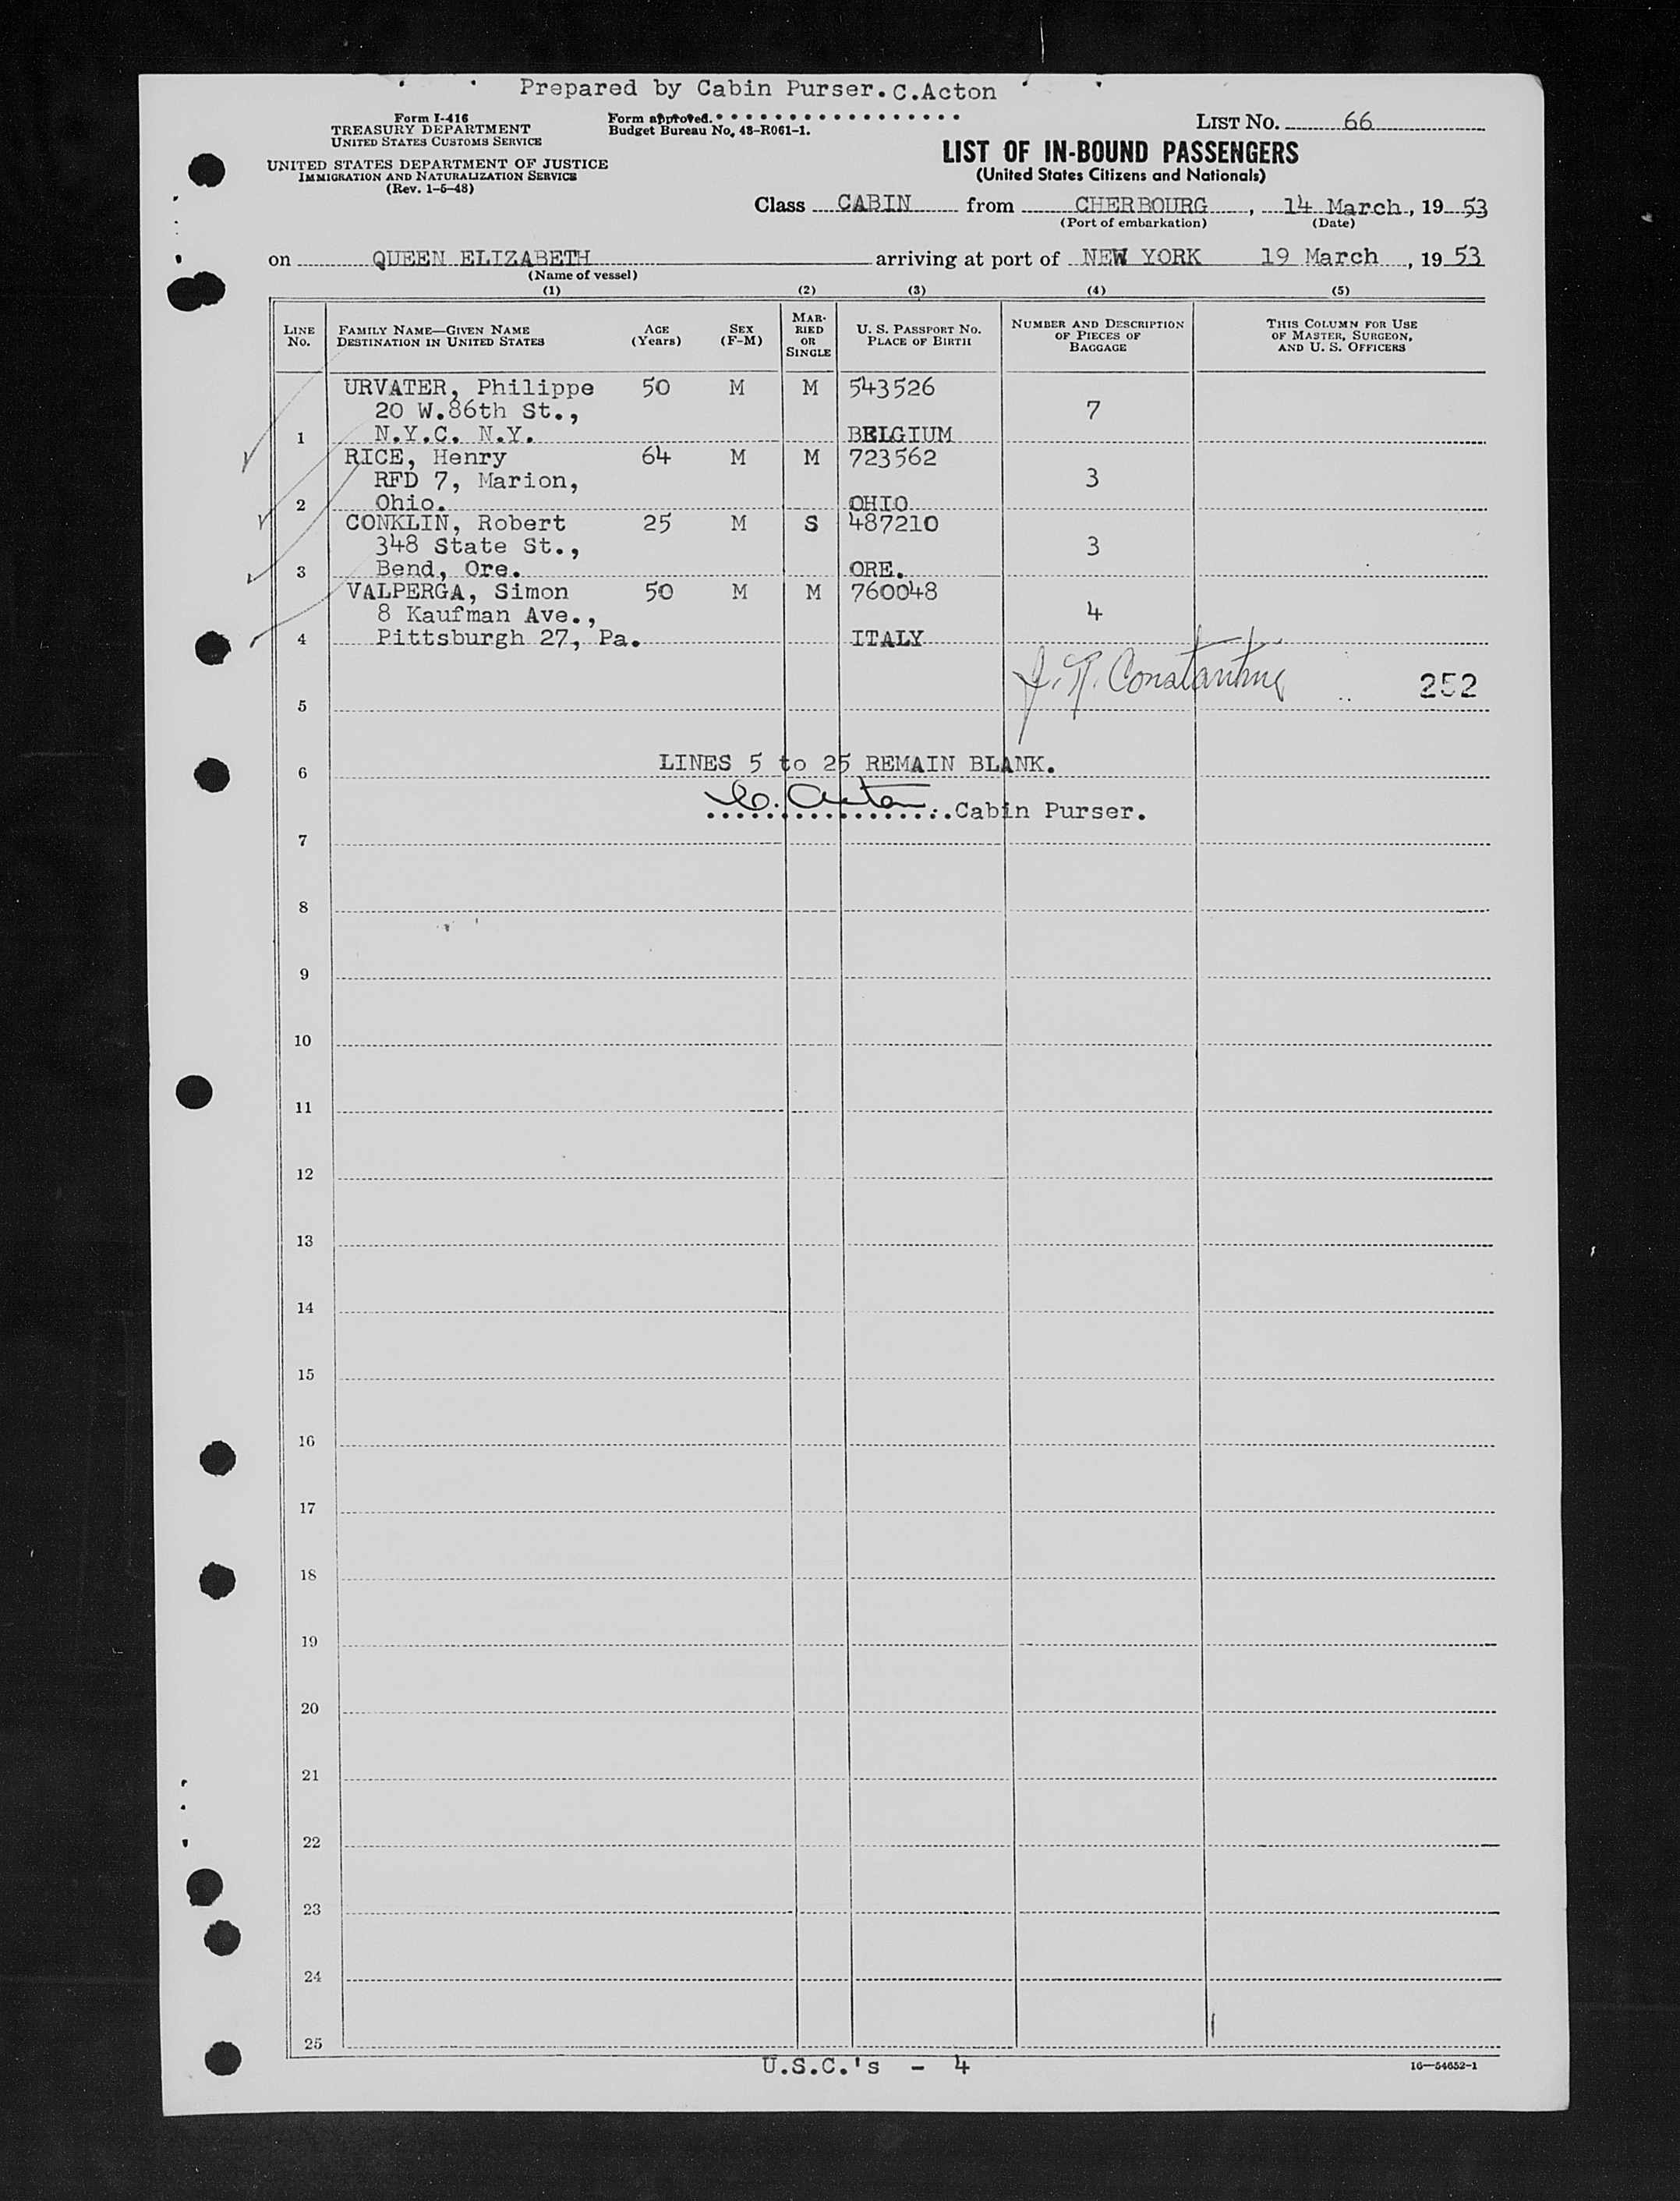 Prepared by Cabin Purser. C.Acton
Form I-416
TREASURY DEPARTMENT
UNITED STATES CUSTOMS SERVICE
UNITED STATES DEPARTMENT OF JUSTICE
IMMIGRATION AND NATURALIZATION SERVICE
(Rev. 1-5-48)
Form approved.
Budget Bureau No. 43-R061-1.
LIST NO. 66
LIST OF IN-BOUND PASSENGERS
(United States Citizens and Nationals)
Class CABIN from CHERBOURG, 14 March, 19 53
(Port of embarkation) (Date)
on QUEEN ELIZABETH arriving at port of NEW YORK 19 March, 19 53
(Name of vessel)
(1) (2) (3) (4) (5)
LINE No.
FAMILY NAME—GIVEN NAME
DESTINATION IN UNITED STATES
AGE
(Years)
SEX
(F-M)
MAR-
RIED
OR
SINGLE
U. S. PASSPORT NO.
PLACE OF BIRTH
NUMBER AND DESCRIPTION
OF PIECES OF
BAGGAGE
THIS COLUMN FOR USE
OF MASTER, SURGEON,
AND U. S. OFFICERS
URVATER, Philippe 50 M M 543526
20 W.86th St., 7
1 N.Y.C. N.Y. BELGIUM
RICE, Henry 64 M M 723562
RFD 7, Marion, 3
2 Ohio. OHIO
CONKLIN, Robert 25 M S 487210
348 State St., 3
3 Bend, Ore. ORE.
VALPERGA, Simon 50 M M 760048
8 Kaufman Ave., 4
4 Pittsburgh 27, Pa. ITALY
Constantine 252
5
LINES 5 to 25 REMAIN BLANK.
6
C. Acton Cabin Purser.
7
8
9
10
11
12
13
14
15
16
17
18
19
20
21
22
23
24
25
U.S.C.'s - 4
16—54652-1